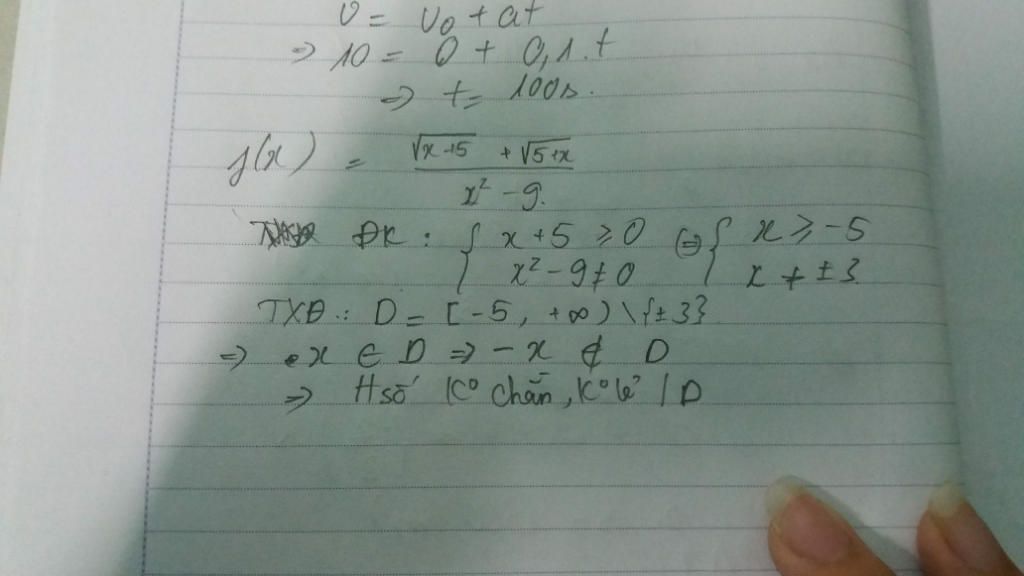 v = v0 + at
⇒ 10 = 0 + 0,1.t
⇒ t = 100s.
f(x) = (√x+5 + √5+x) / (x² - 9.)
ĐK : { x + 5 ≥ 0 ⇔ { x ≥ -5
x² - 9 ≠ 0 x ≠ ±3
TXĐ : D = [-5, +∞) \ {±3}
⇒ x ∈ D ⇒ -x ∉ D
⇒ Hsố K° chẵn, K° lẻ / D